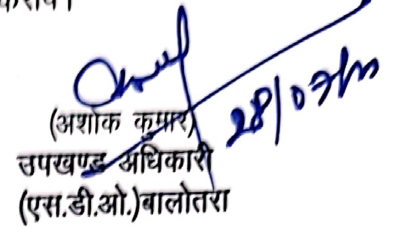 (अशोक कुमार)
28/07/
उपखण्ड अधिकारी
(एस.डी.ओ.)बालोतरा